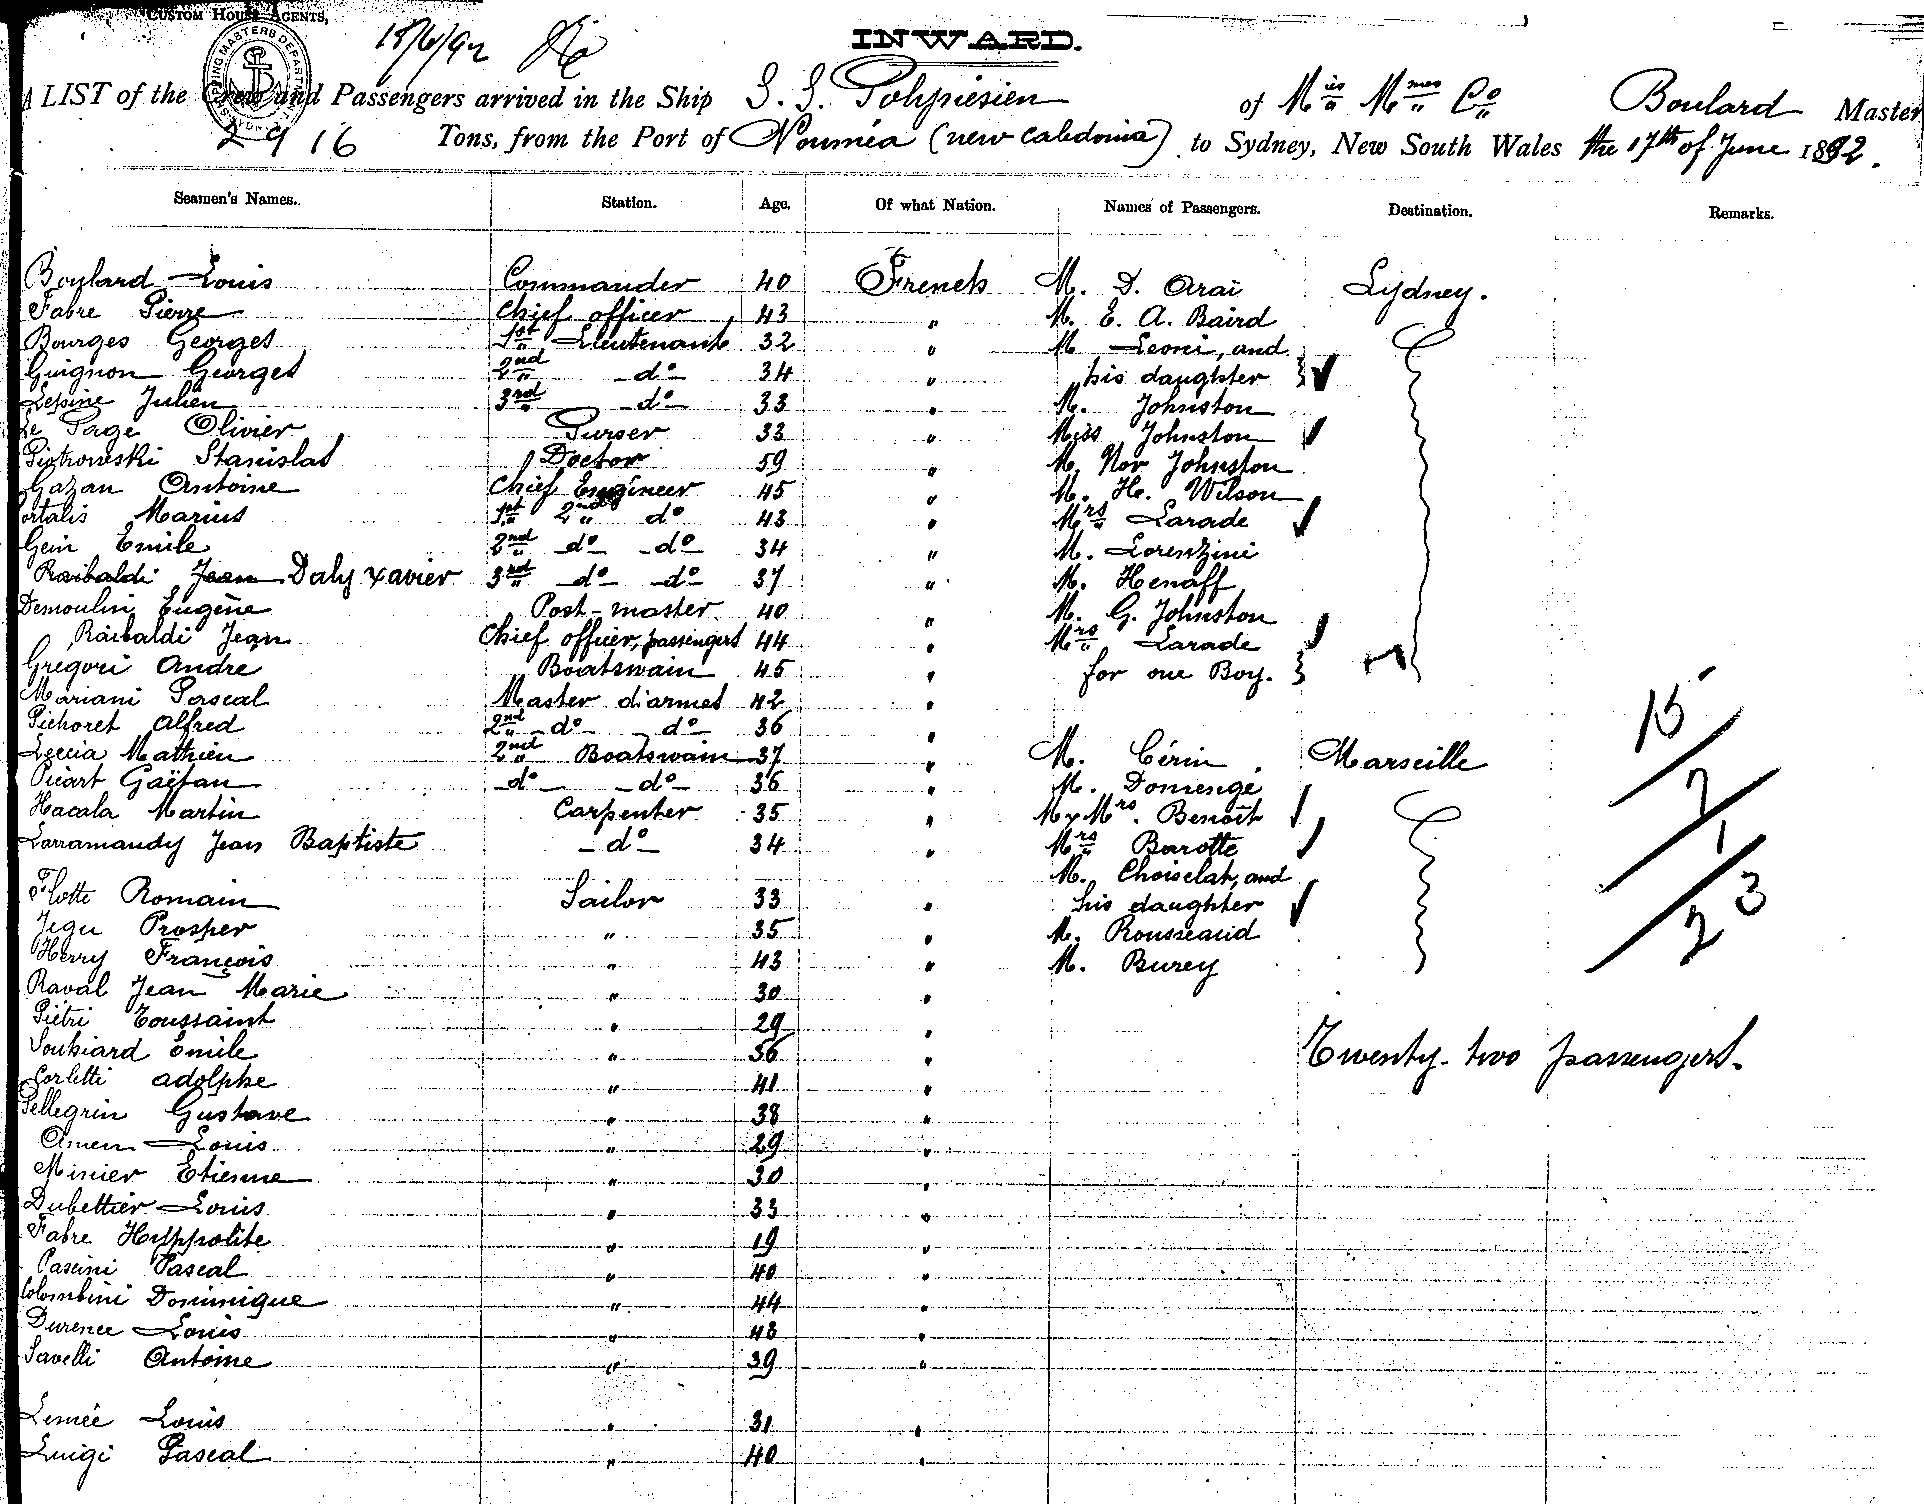 CUSTOM HOUSE AGENTS,
18/6/92
INWARD.
A LIST of the Crew and Passengers arrived in the Ship S. S. Polynésien of Mies Mmes Co Boulard Master
2916 Tons, from the Port of Nouméa (new Caledonia) to Sydney, New South Wales the 17th of June 1892.
Seamen's Names. Station. Age. Of what Nation. Names of Passengers. Destination. Remarks.
Boulard Louis Commander 40 French M. D. Arrai Sydney.
Fabre Pierre Chief officer 43 " M. E. A. Baird
Bourges Georges 1st Lieutenant 32 " M Leoni, and
Guignon Georges 2nd do 34 " his daughter
Lepine Julien 3rd do 33 " M. Johnston
Le Page Olivier Purser 33 " Miss Johnston
Piotrowski Stanislas Doctor 59 " M. Nor Johnston
Gazan Antoine Chief Engineer 45 " M. H. Wilson
Portalis Marius 1st 2nd do 43 " Mrs Larade
Gein Emile 2nd do do 34 " M. Lorenzini
Raibaldi Jean Daly xavier 3rd do do 37 " M. Henaff
Demoulin Eugène Post-master 40 " M. G. Johnston
Raibaldi Jean Chief officer, passengers 44 " Mrs Larade
Gregori André Boatswain 45 " for one Boy.
Mariani Pascal Master d'armes 42 "
Pichoret Alfred 2nd do do 36 "
Leccia Mathieu 2nd Boatswain 37 " M. Cérin Marseille
Picart Gaëtan do do 36 " M. Domenge
Hacala Martin Carpenter 35 " M & Mrs. Benoît
Larramandy Jean Baptiste do 34 " Mrs Barotte
M. Choiselat, and
Flotte Romain Sailor 33 " his daughter
Jegu Prosper " 35 " M. Rousseaud
Herry François " 43 " M. Burey
Raval Jean Marie " 30 "
Piétri Toussaint " 29 "
Soubiard Emile " 36 "
Twenty-two passengers.
Corletti Adolphe " 41 "
Pellegrin Gustave " 38 "
Amen Louis " 29 "
Minier Etienne " 30 "
Dubettier Louis " 33 "
Fabre Hyppolite " 19 "
Pascini Pascal " 40 "
Colombini Dominique " 44 "
Durence Louis " 43 "
Savelli Antoine " 39 "
Lemée Louis " 31 "
Luigi Pascal " 40 "
15
7
1
23